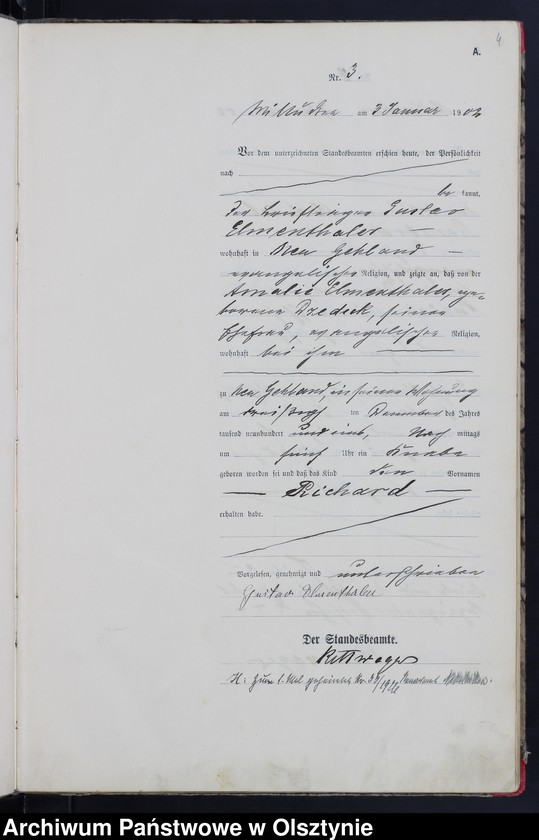 4
A.
Nr. 3.
am 3 Januar 1902
Vor dem unterzeichneten Standesbeamten erschien heute, der Persönlichkeit
nach
be kannt,
der Briefträger Gustav
Elmenthaler
wohnhaft in Neu Gehland
evangelischer Religion, und zeigte an, daß von der
Amalie Elmenthaler, ge-
borene Dzedeck, seiner
Ehefrau, evangelischer Religion,
wohnhaft bei ihm
zu Neu Gehland, in seiner Wohnung
am ten Dezember des Jahres
tausend neunhundert und eins, Nach mittags
um fünf Uhr ein Knabe
geboren worden sei und daß das Kind den Vornamen
Richard
erhalten habe.
Vorgelesen, genehmigt und unterschrieben
Gustav Elmenthaler
Der Standesbeamte.
H: Zum 1. Mal geheiratet Nr. /19
Archiwum Państwowe w Olsztynie